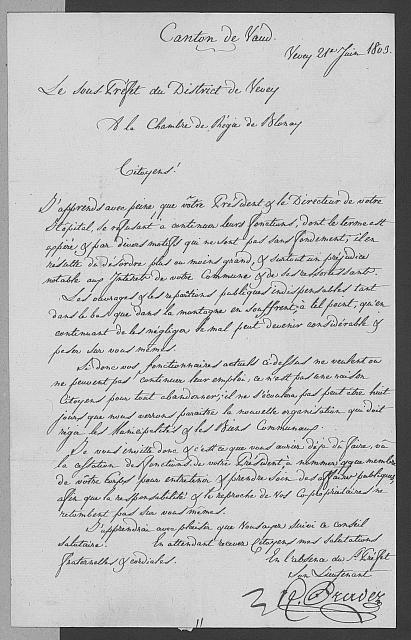 Canton de Vaud.
Vevey 21e Juin 1803.
Le sous Préfet du District de Vevey
A la Chambre de Régie de Blonay
Citoyens!
J'apprends avec peine que vôtre Président & le Directeur de votre
Hôpital, se refusent à continuer leurs fonctions, dont le terme est
expiré & par divers motifs qui ne sont pas sans fondement, il en
résulte du désordre plus ou moins grand, & surtout un préjudice
notable aux Intérêts de votre Commune & de ses ressortissans.
Les ouvrages & les réparations publiques indispensables tant
dans le bas que dans la montagne en souffrent, à tel point, qu'en
continuant de les négliger le mal peut devenir considérable &
peser sur vous mêmes.
Si donc vos fonctionnaires actuels ci-dessus ne veulent ou
ne peuvent pas continuer leur emploi, ce n'est pas une raison
Citoyens pour tout abandonner; il ne s'écoulera pas peut être huit
jours que nous verrons paraître la nouvelle organisation qui doit
régir les Municipalités & les Biens Communaux.
Je vous invitte donc & c'est ce que vous auriez déjà dû faire, vû
la cessation des fonctions de votre Président, à nommer quelque membre
de vôtre corps pour entretenir & prendre soin des affaires publiques
afin que la responsabilité & le reproche de vos Co-propriétaires ne
retombent pas sur vous mêmes.
J'apprendrai avec plaisir que Vous ayez suivi ce conseil
salutaire. En attendant recevez Citoyens mes salutations
fraternelles & cordiales.
En l'absence du Ss Préfet
son Lieutenant